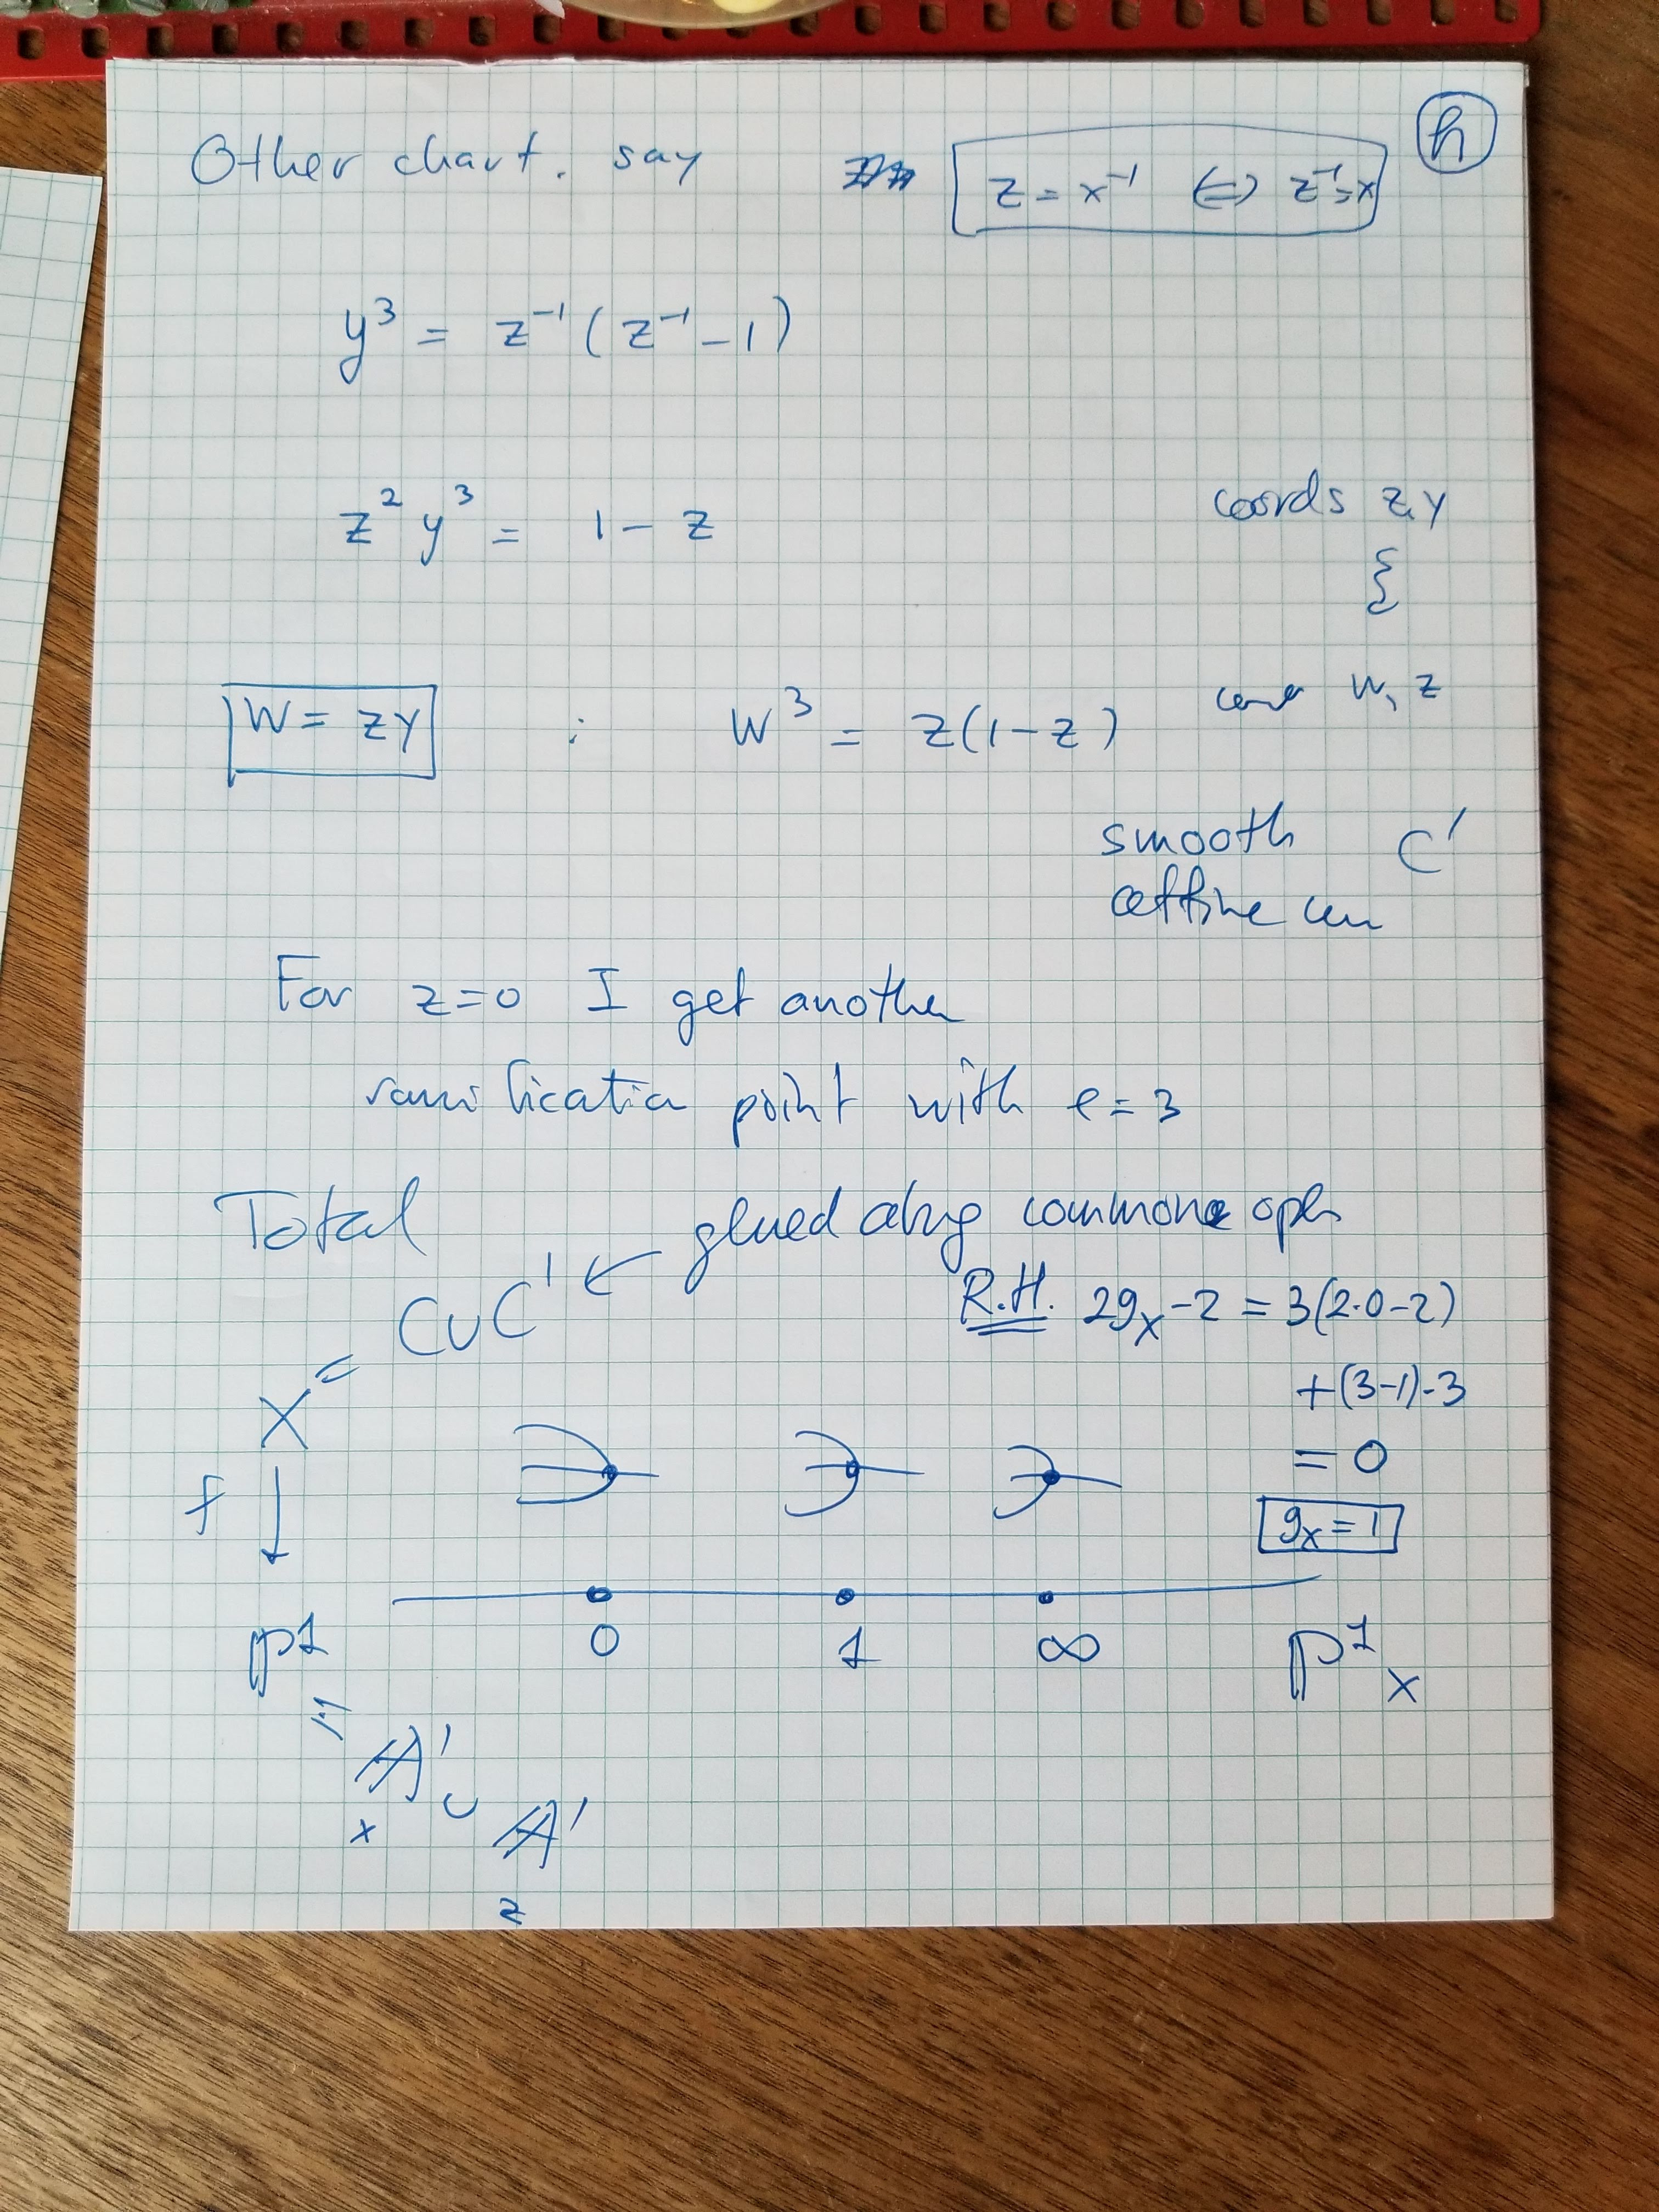 Other chart. say
z = x⁻¹ ⇔ z⁻¹ = x
h
y³ = z⁻¹(z⁻¹ - 1)
z² y³ = 1 - z
coords z, y
W = zy : W³ = z(1-z)
W, z
smooth C'
affine
For z=0 I get another
ramification point with e=3
Total
glued along common open
C ∪ C' ←
R.H. 2g_X - 2 = 3(2·0-2)
+(3-1)·3
= 0
g_X = 1
X =
f ↓
0 1 ∞
P¹
P¹ x
=
A¹ ∪ A¹
x z